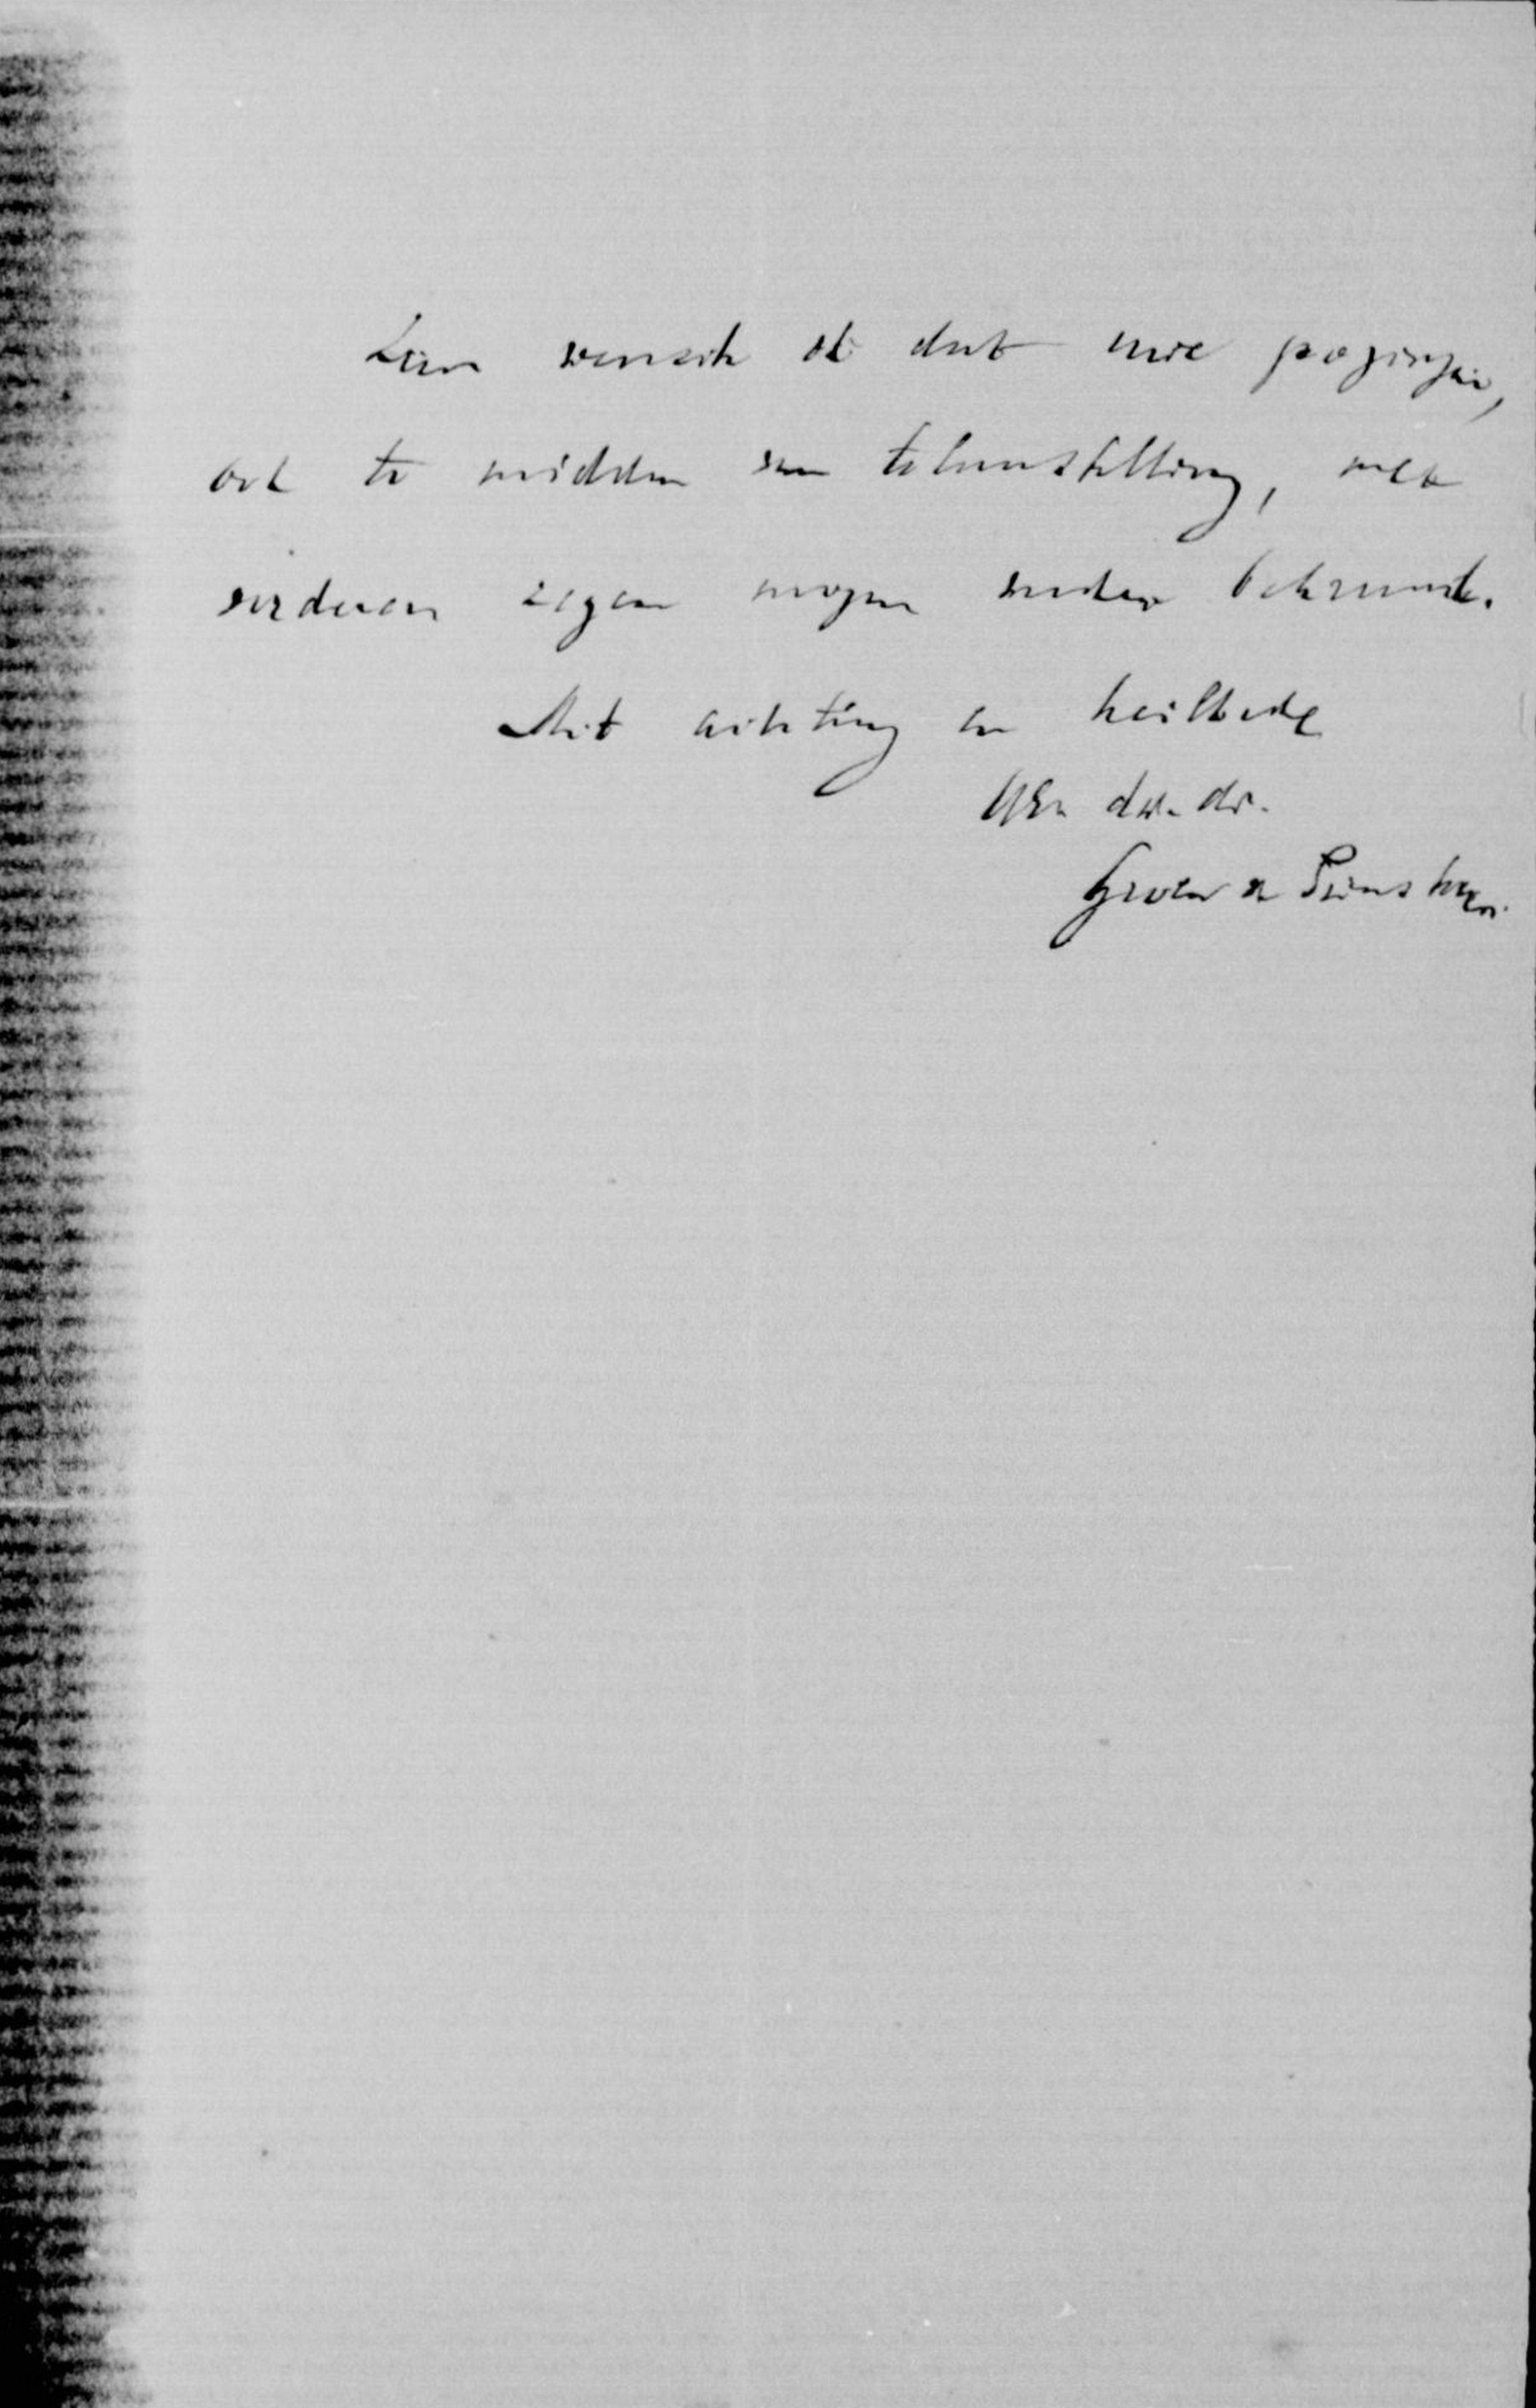 Zeer wensch ik dat uwe pogingen,
ook te midden van teleurstelling, met
verderen zegen mogen worden bekroond.
Met achting en heilbede
UEn dw. dr.
Groen v Prinsterer.